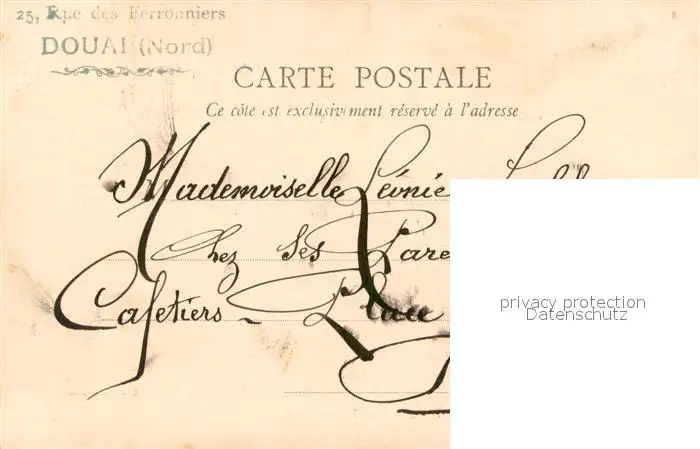 25, Rue des Ferronniers
DOUAI (Nord)
CARTE POSTALE
Ce côté est exclusivement réservé à l'adresse
Mademoiselle Léonie
Chez ses Pare
Cafetiers - Place
privacy protection
Datenschutz